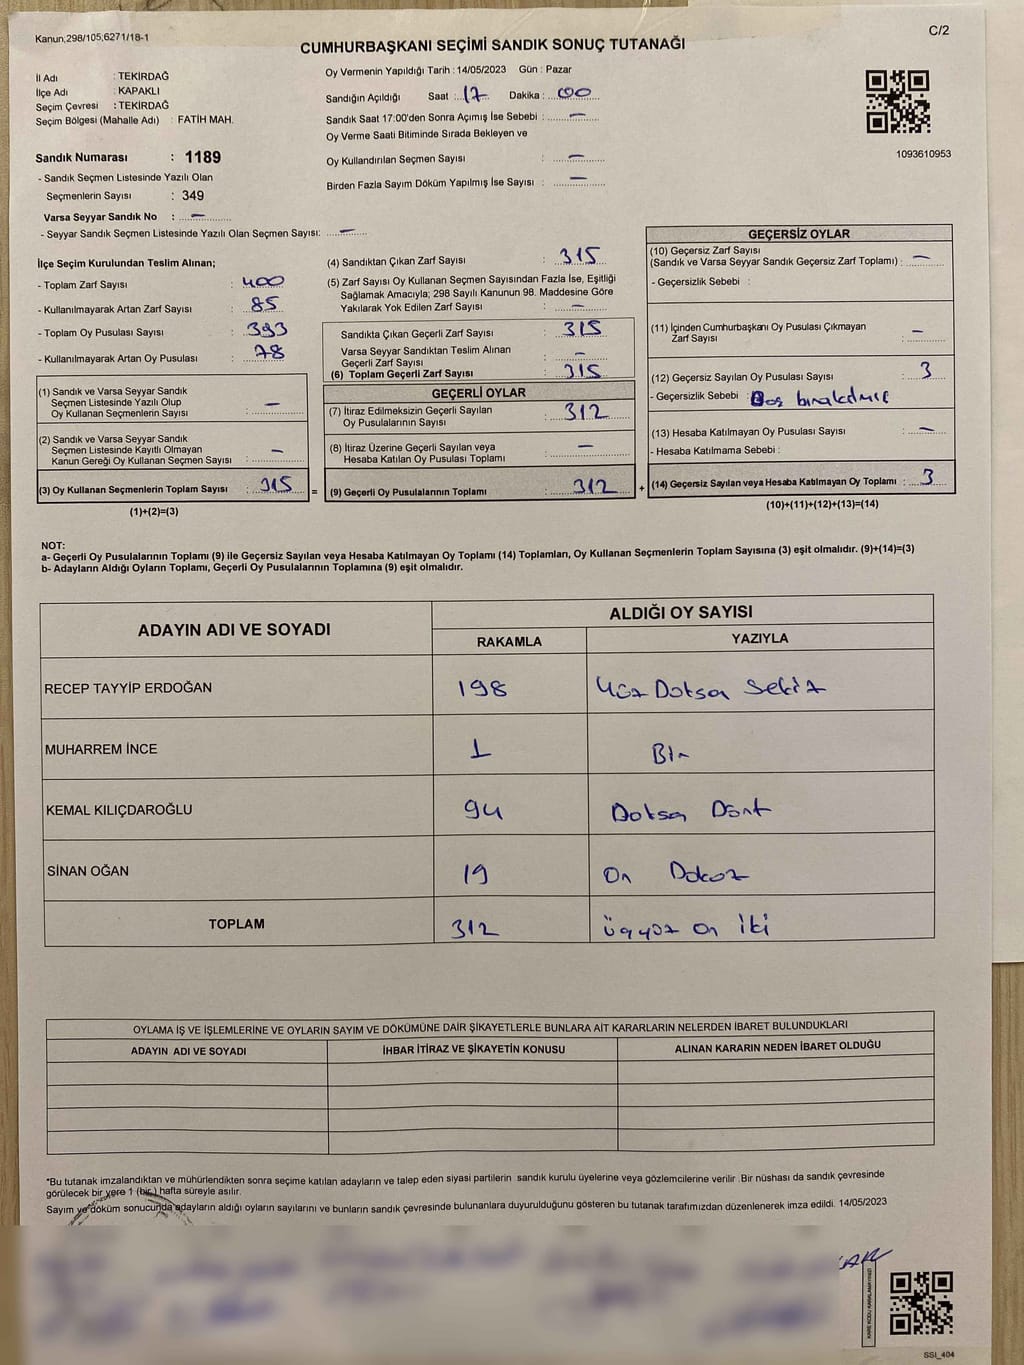 Kanun;298/105;6271/18-1
C/2
CUMHURBAŞKANI SEÇİMİ SANDIK SONUÇ TUTANAĞI
İl Adı : TEKİRDAĞ
İlçe Adı : KAPAKLI
Seçim Çevresi : TEKİRDAĞ
Seçim Bölgesi (Mahalle Adı) : FATİH MAH.
Sandık Numarası : 1189
- Sandık Seçmen Listesinde Yazılı Olan
Seçmenlerin Sayısı : 349
Varsa Seyyar Sandık No : –
- Seyyar Sandık Seçmen Listesinde Yazılı Olan Seçmen Sayısı: –
Oy Vermenin Yapıldığı Tarih : 14/05/2023 Gün : Pazar
Sandığın Açıldığı Saat : 17 Dakika : 00
Sandık Saat 17:00'den Sonra Açımış İse Sebebi : –
Oy Verme Saati Bitiminde Sırada Bekleyen ve
Oy Kullandırılan Seçmen Sayısı : –
Birden Fazla Sayım Döküm Yapılmış İse Sayısı : –
1093610953
İlçe Seçim Kurulundan Teslim Alınan;
- Toplam Zarf Sayısı : 400
- Kullanılmayarak Artan Zarf Sayısı : 85
- Toplam Oy Pusulası Sayısı : 393
- Kullanılmayarak Artan Oy Pusulası : 78
(1) Sandık ve Varsa Seyyar Sandık
Seçmen Listesinde Yazılı Olup
Oy Kullanan Seçmenlerin Sayısı : –
(2) Sandık ve Varsa Seyyar Sandık
Seçmen Listesinde Kayıtlı Olmayan
Kanun Gereği Oy Kullanan Seçmen Sayısı : –
(3) Oy Kullanan Seçmenlerin Toplam Sayısı : 315 =
(1)+(2)=(3)
(4) Sandıktan Çıkan Zarf Sayısı : 315
(5) Zarf Sayısı Oy Kullanan Seçmen Sayısından Fazla İse, Eşitliği
Sağlamak Amacıyla; 298 Sayılı Kanunun 98. Maddesine Göre
Yakılarak Yok Edilen Zarf Sayısı : –
Sandıkta Çıkan Geçerli Zarf Sayısı : 315
Varsa Seyyar Sandıktan Teslim Alınan
Geçerli Zarf Sayısı : –
(6) Toplam Geçerli Zarf Sayısı : 315
GEÇERLİ OYLAR
(7) İtiraz Edilmeksizin Geçerli Sayılan
Oy Pusulalarının Sayısı : 312
(8) İtiraz Üzerine Geçerli Sayılan veya
Hesaba Katılan Oy Pusulası Toplamı : –
(9) Geçerli Oy Pusulalarının Toplamı : 312 +
GEÇERSİZ OYLAR
(10) Geçersiz Zarf Sayısı
(Sandık ve Varsa Seyyar Sandık Geçersiz Zarf Toplamı) : –
- Geçersizlik Sebebi :
(11) İçinden Cumhurbaşkanı Oy Pusulası Çıkmayan
Zarf Sayısı : –
(12) Geçersiz Sayılan Oy Pusulası Sayısı : 3
- Geçersizlik Sebebi : Boş bırakılmış
(13) Hesaba Katılmayan Oy Pusulası Sayısı : –
- Hesaba Katılmama Sebebi :
(14) Geçersiz Sayılan veya Hesaba Katılmayan Oy Toplamı : 3
(10)+(11)+(12)+(13)=(14)
NOT:
a- Geçerli Oy Pusulalarının Toplamı (9) ile Geçersiz Sayılan veya Hesaba Katılmayan Oy Toplamı (14) Toplamları, Oy Kullanan Seçmenlerin Toplam Sayısına (3) eşit olmalıdır. (9)+(14)=(3)
b- Adayların Aldığı Oyların Toplamı, Geçerli Oy Pusulalarının Toplamına (9) eşit olmalıdır.
ADAYIN ADI VE SOYADI
ALDIĞI OY SAYISI
RAKAMLA YAZIYLA
RECEP TAYYİP ERDOĞAN 198 Yüz Doksan Sekiz
MUHARREM İNCE 1 Bir
KEMAL KILIÇDAROĞLU 94 Doksan Dört
SİNAN OĞAN 19 On Dokuz
TOPLAM 312 Üçyüz On İki
OYLAMA İŞ VE İŞLEMLERİNE VE OYLARIN SAYIM VE DÖKÜMÜNE DAİR ŞİKAYETLERLE BUNLARA AİT KARARLARIN NELERDEN İBARET BULUNDUKLARI
ADAYIN ADI VE SOYADI İHBAR İTİRAZ VE ŞİKAYETİN KONUSU ALINAN KARARIN NEDEN İBARET OLDUĞU
*Bu tutanak imzalandıktan ve mühürlendikten sonra seçime katılan adayların ve talep eden siyasi partilerin sandık kurulu üyelerine veya gözlemcilerine verilir. Bir nüshası da sandık çevresinde
görülecek bir yere 1 (bir) hafta süreyle asılır.
Sayım ve döküm sonucunda adayların aldığı oyların sayılarını ve bunların sandık çevresinde bulunanlara duyurulduğunu gösteren bu tutanak tarafımızdan düzenlenerek imza edildi. 14/05/2023
SSI_404